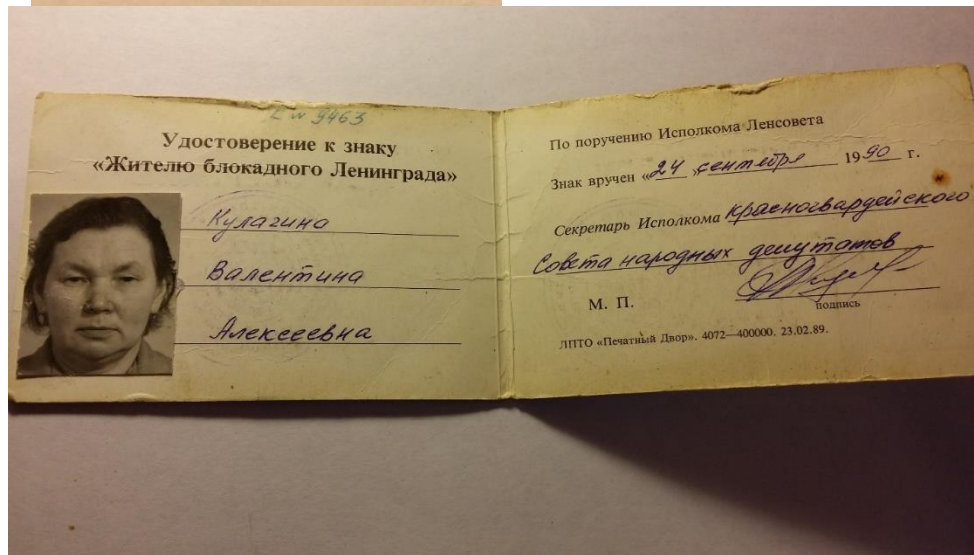 L № 9463
Удостоверение к знаку
«Жителю блокадного Ленинграда»
Кулагина
Валентина
Алексеевна
По поручению Исполкома Ленсовета
Знак вручен «24 сентября 1990 г.
Секретарь Исполкома Красногвардейского
Совета народных депутатов
М. П.
подпись
ЛПТО «Печатный Двор». 4072—400000. 23.02.89.